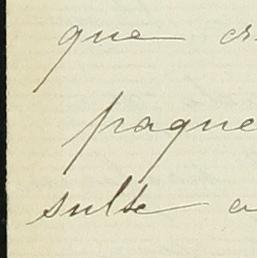 que
paque
sulte a